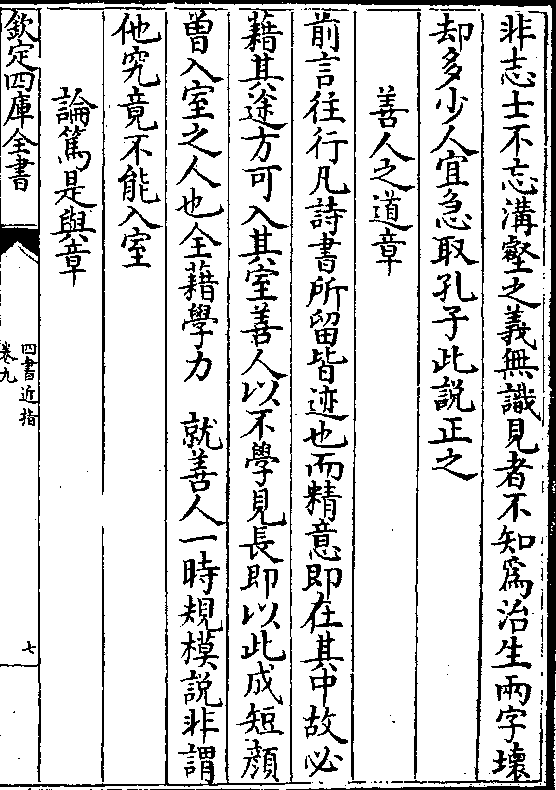 非志士不忘溝壑之義無識見者不知爲治生兩字壞
却多少人宜急取孔子此說正之
善人之道章
前言往行凡詩書所留皆迹也而精意即在其中故必
藉其途方可入其室善人以不學見長即以此成短顔
曽入室之人也全藉學力　就善人一時規模說非謂
他究竟不能入室
論篤是與章
欽定四庫全書
四書近指
卷九
七